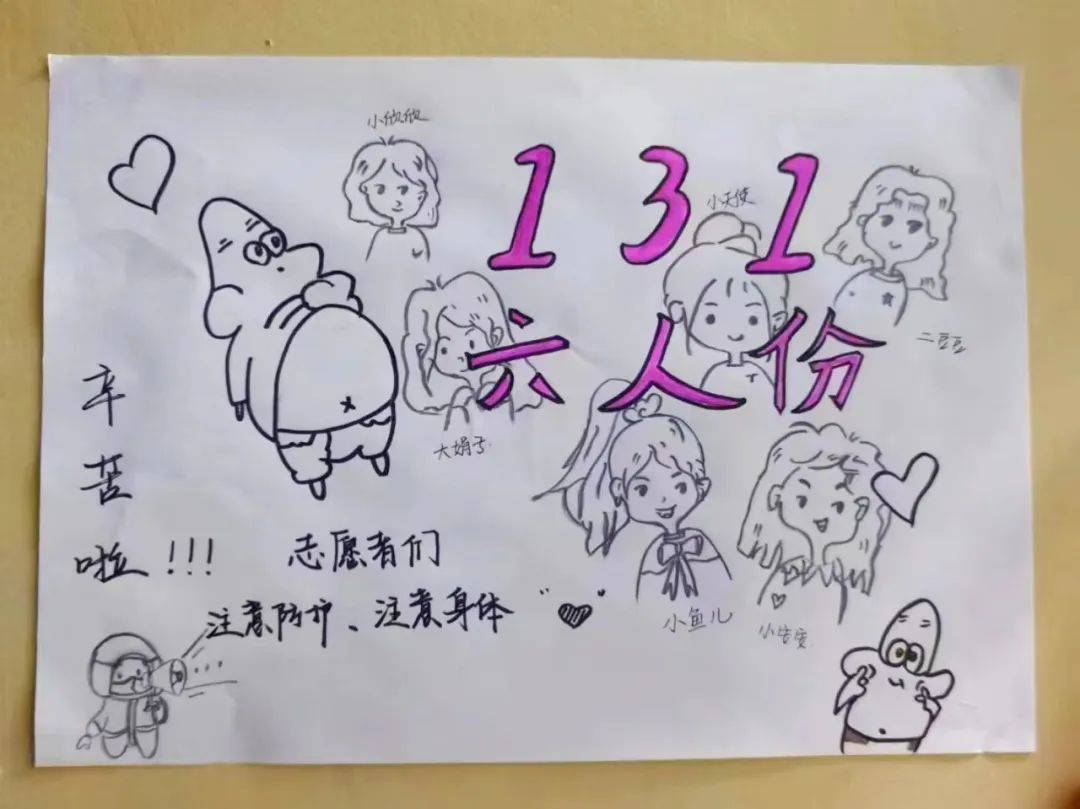 小欣欣
1 3 1
小天使
二豆豆
六人份
大娟子
辛
苦
啦!!!
志愿者们
注意防护、注意身体
小鱼儿
小安安